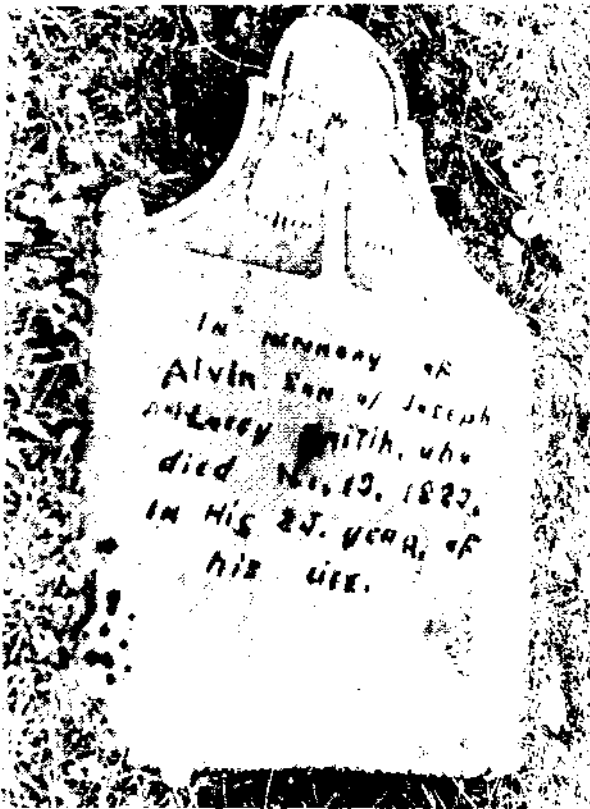 In memory of
Alvin Son of Joseph
Lucey Smith, who
died 19, 182
In His 25. year, of
his life.